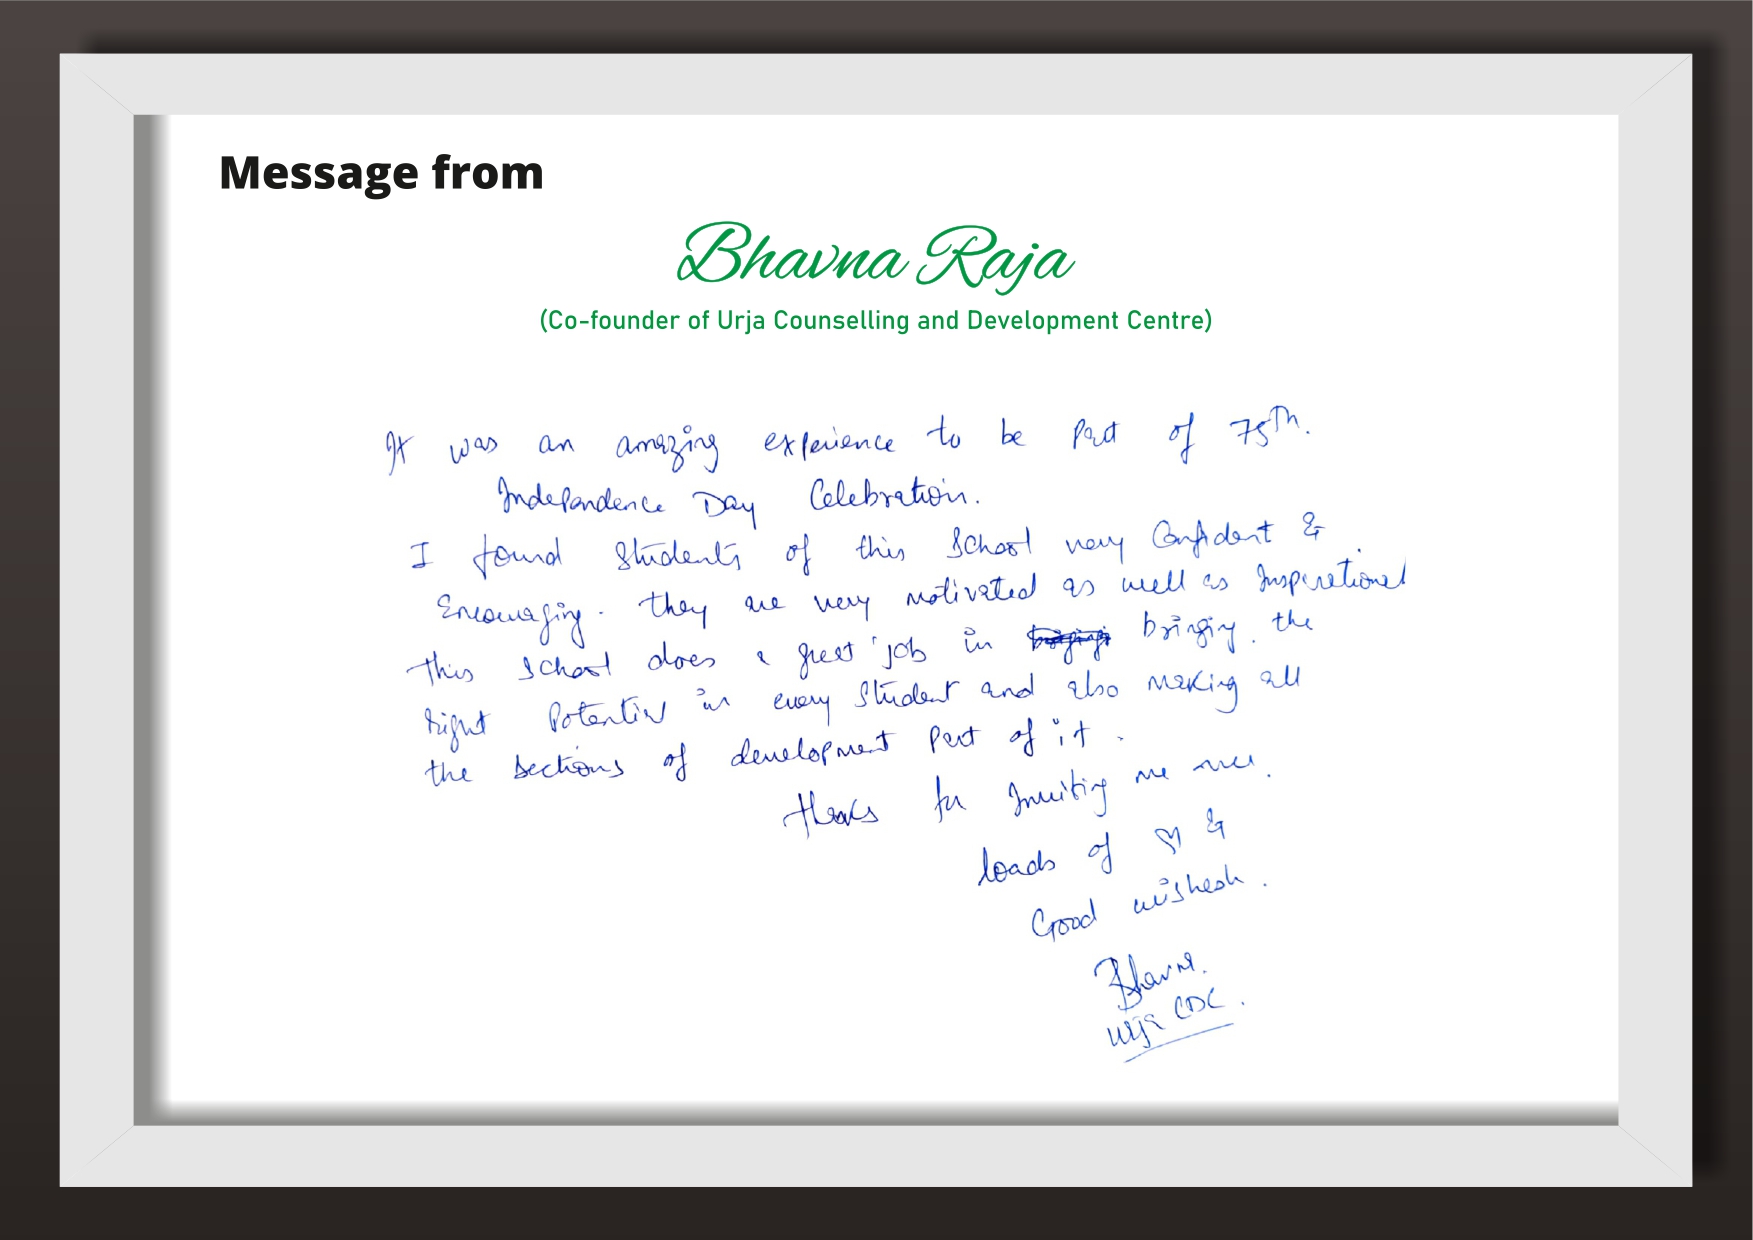 Message from
Bhavna Raja
(Co-founder of Urja Counselling and Development Centre)
It was an amazing experience to be Part of 75th.
Independence Day Celebration.
I found Students of this School very Confident &
Encouraging. they are very motivated as well as Inspirational
this School does a great job in bringing the
right Potential in every Student and also making all
the sections of development part of it.
thanks for Inviting me
loads of ♡ &
Good wishesh.
Bhavna.
Urja CDC.